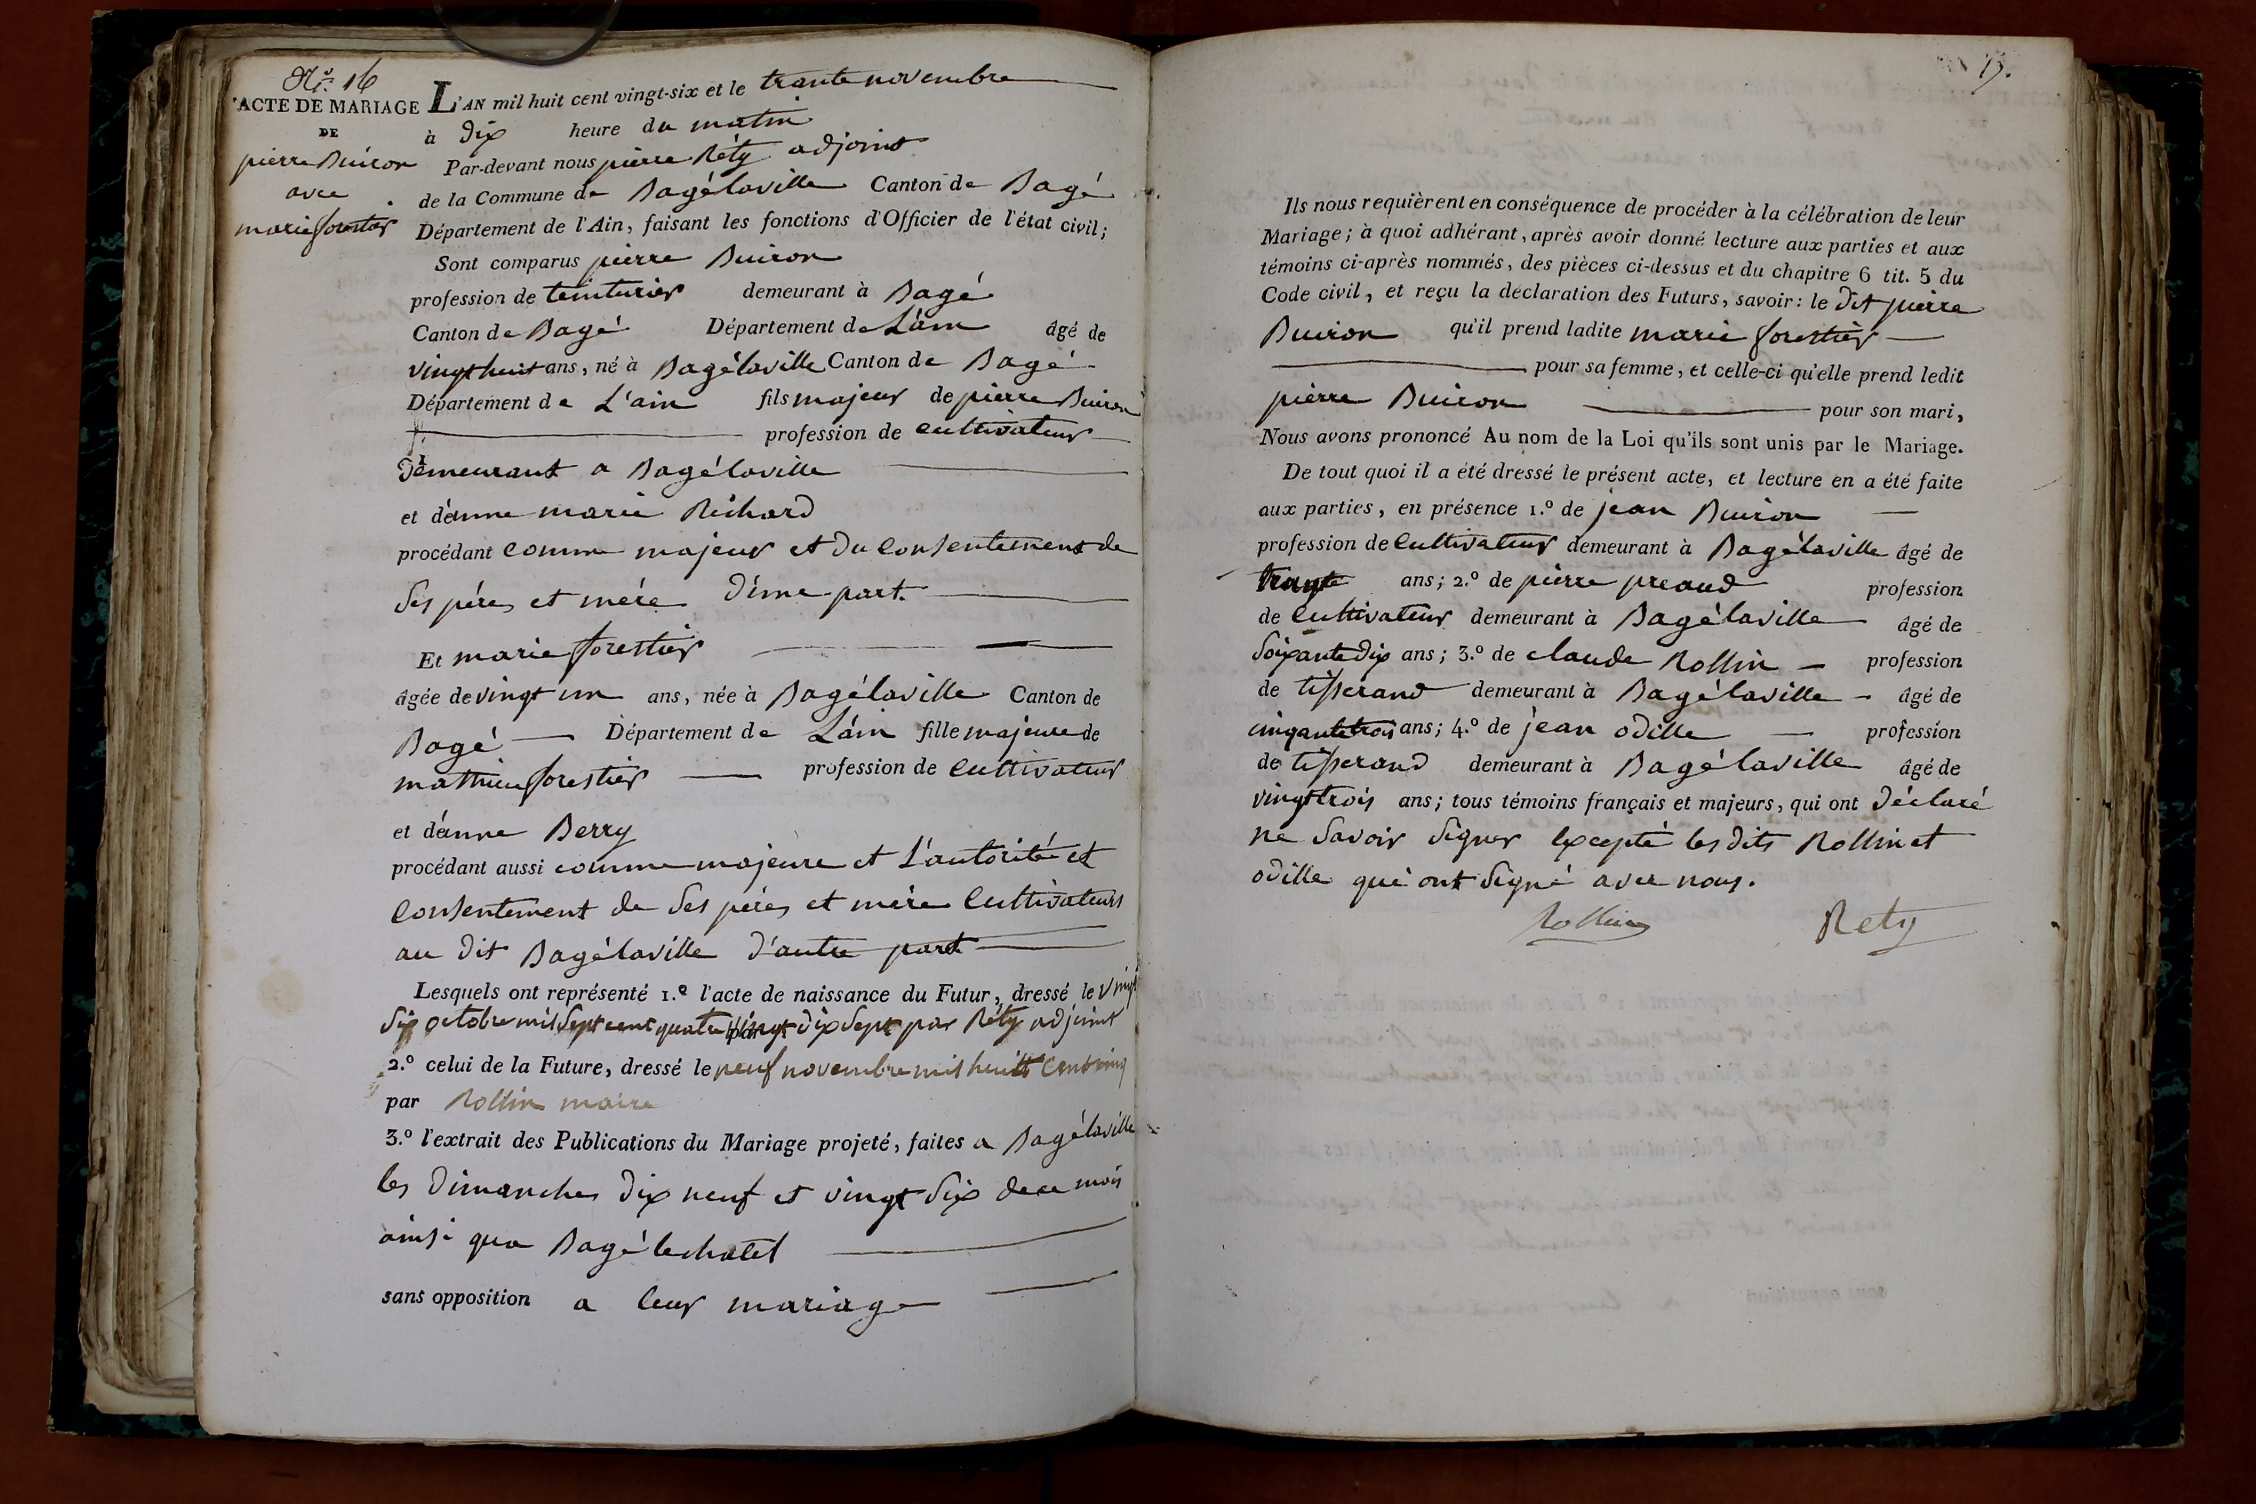 N.° 16
ACTE DE MARIAGE
DE
pierre Buiron
avec
marie forestier
L'AN mil huit cent vingt-six et le trante novembre
à dix heure du matin
Par-devant nous pierre Réty adjoint
de la Commune de Bagélaville Canton de Bagé
Département de l'Ain, faisant les fonctions d'Officier de l'état civil;
Sont comparus pierre Buiron
profession de teinturier demeurant à Bagé
Canton de Bagé Département de L'ain âgé de
vingt huit ans, né à Bagélaville Canton de Bagé
Département de L'ain fils majeur de pierre Buiron
profession de cultivateur
demeurant a Bagélaville
et d'éanne marie Richard
procédant comme majeur et du consentement de
ses péres et mére d'éme part.
Et marie forestier
âgée de vingt un ans, née à Bagélaville Canton de
Bagé Département de L'ain fille majeure de
mathieu forestier profession de cultivateur
et d'éanne Berry
procédant aussi comme majeure et L'autorité et
consentement de ses péres et mére cultivateurs
au dit Bagélaville d'autre part
Lesquels ont représenté 1.° l'acte de naissance du Futur, dressé le vingt
six octobre mil sept cent quatre vingt dix sept par Réty adjoint
2.° celui de la Future, dressé le neuf novembre mil huit cent cinq
par Rollin maire
3.° l'extrait des Publications du Mariage projeté, faites a Bagélaville
les dimanches dix neuf et vingt six de ce mois
ainsi qu'a Bagé le chatel
sans opposition a leur mariage
19.
Ils nous requièrent en conséquence de procéder à la célébration de leur
Mariage; à quoi adhérant, après avoir donné lecture aux parties et aux
témoins ci-après nommés, des pièces ci-dessus et du chapitre 6 tit. 5 du
Code civil, et reçu la déclaration des Futurs, savoir: le dit pierre
Buiron qu'il prend ladite marie forestier
pour sa femme, et celle-ci qu'elle prend ledit
pierre Buiron pour son mari,
Nous avons prononcé Au nom de la Loi qu'ils sont unis par le Mariage.
De tout quoi il a été dressé le présent acte, et lecture en a été faite
aux parties, en présence 1.° de jean Buiron
profession de cultivateur demeurant à Bagélaville âgé de
trante ans; 2.° de pierre preaud profession
de cultivateur demeurant à Bagélaville âgé de
soixante dix ans; 3.° de claude Rollin profession
de tisserand demeurant à Bagélaville âgé de
cinqante trois ans; 4.° de jean odille profession
de tisserand demeurant à Bagélaville âgé de
vingt trois ans; tous témoins français et majeurs, qui ont déclaré
ne savoir signer excepté les dits Rollin et
odille qui ont signé avec nous.
Rollin Rety